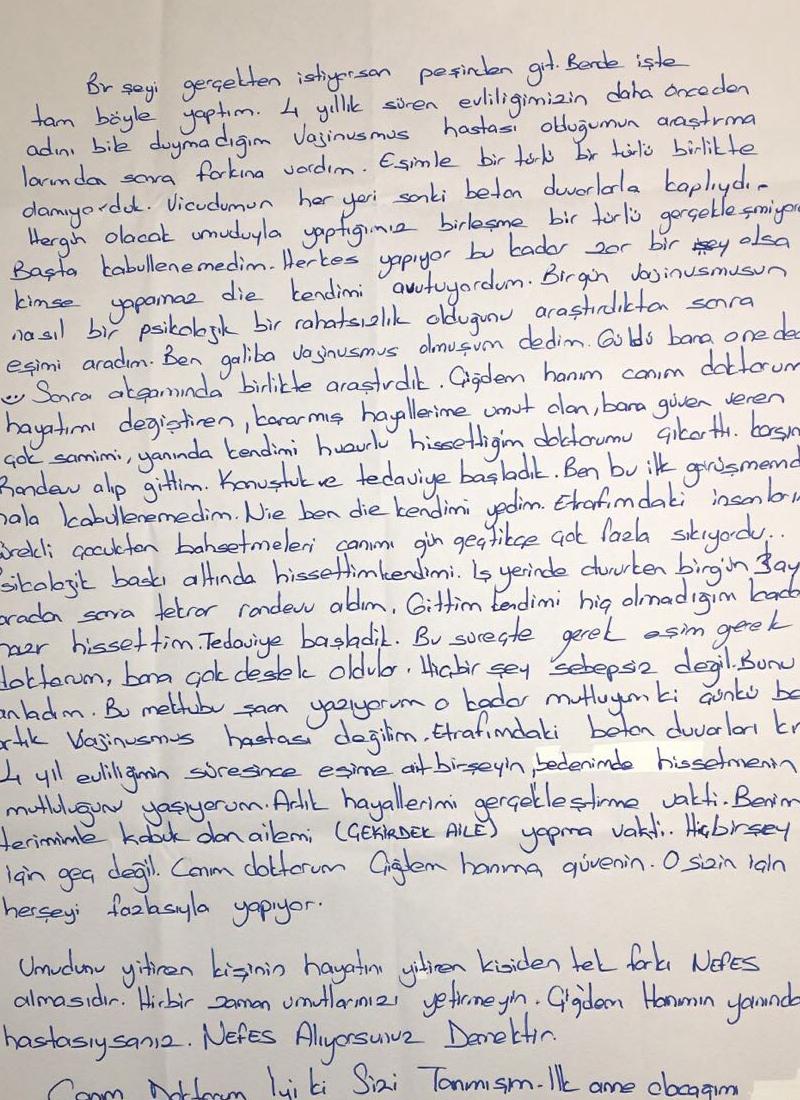 Bir şeyi gerçekten istiyorsan peşinden git. Bende işte
tam böyle yaptım. 4 yıllık süren evliliğimizin daha önceden
adını bile duymadığım Vajinusmus hastası olduğumun araştırma
larımdan sonra farkına vardım. Eşimle bir türlü bir türlü birlikte
olamıyorduk. Vücudumun her yeri sanki beton duvarlarla kaplıydı.
Hergün olacak umuduyla yaptığımız birleşme bir türlü gerçekleşmiyor
Başta kabullenemedim. Herkes yapıyor bu kadar zor bir şey olsa
kimse yapamaz die kendimi avutuyordum. Birgün Vajinusmusun
nasıl bir psikolojik bir rahatsızlık olduğunu araştırdıktan sonra
eşimi aradım. Ben galiba vajinusmus olmuşum dedim. Güldü bana o ne ded
Sonra akşamında birlikte araştırdık. Çiğdem hanım canım doktorum
hayatımı değiştiren, kararmış hayallerime umut olan, bana güven veren
çok samimi, yanında kendimi huzurlu hissettiğim doktorumu çıkarttı. karşım
Randevu alıp gittim. Konuştuk ve tedaviye başladık. Ben bu ilk görüşmemd
hala kabullenemedim. Nie ben die kendimi yedim. Etrafımdaki insanların
ürekli çocuktan bahsetmeleri canımı gün geçtikçe çok fazla sıkıyordu..
sikolojik baskı altında hissettim kendimi. İş yerinde dururken birgün 3 ay
aradan sonra tekrar randevu aldım. Gittim kendimi hiç olmadığım kada
hazır hissettim. Tedaviye başladık. Bu süreçte gerek eşim gerek
doktorum, bana çok destek oldular. Hiçbir şey sebepsiz değil. Bunu
anladım. Bu mektubu şuan yazıyorum o kadar mutluyum ki çünkü be
rtık Vajinusmus hastası değilim. Etrafımdaki beton duvarları kr
4 yıl evliliğimin süresince eşime ait birşeyin, bedenimde hissetmenin
mutluluğunu yaşıyorum. Artık hayallerimi gerçekleştirme vakti. Benim
terimimle kabuk olan ailemi (ÇEKİRDEK AİLE) yapma vakti. Hiçbirşey
için geç değil. Canım doktorum Çiğdem hanıma güvenin. O sizin için
herşeyi fazlasıyla yapıyor.
Umudunu yitiren kişinin hayatını yitiren kisiden tek farkı NEFES
almasıdır. Hiçbir zaman umutlarınızı yetirmeyin. Çiğdem Hanımın yanında
hastasıysanız. NEFES Alıyorsunuz Demektir.
Canım Doktorum İyi ki Sizi Tanımışım. İlk anne olacağımı